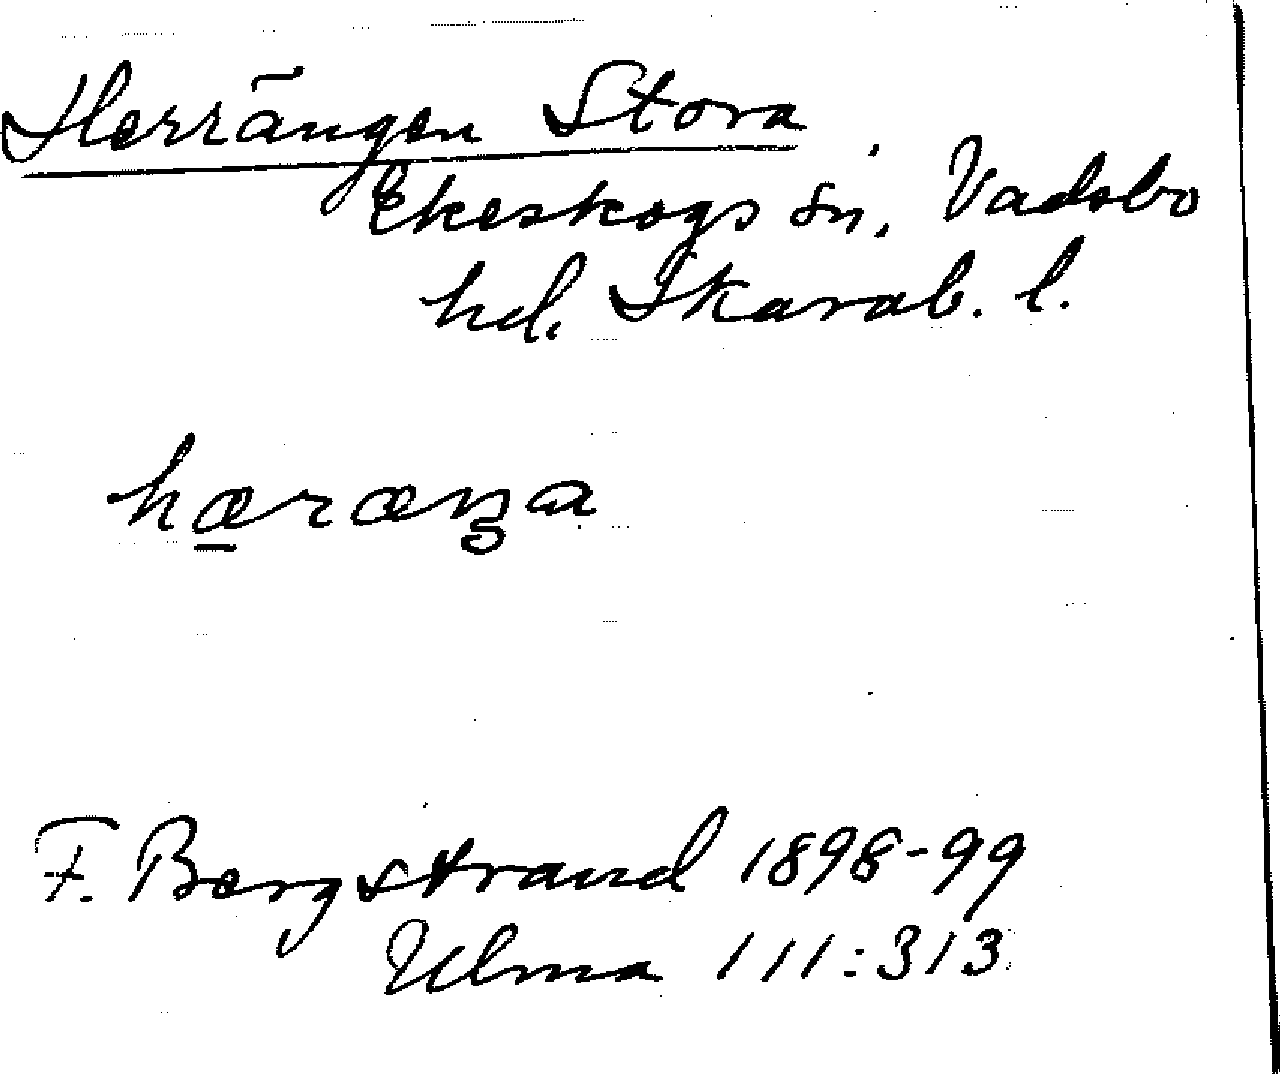 Herrängen Stora
Ekeskogs sn, Vadsbo
hd. Skarab. l.
hæræŋa
F. Bergstrand 1898-99
Ulma 111:313